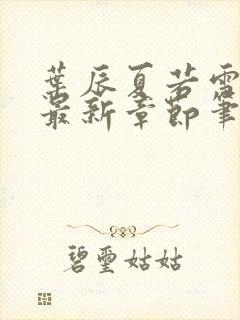 葉辰夏若雪
最新章節筆
碧璽姑姑